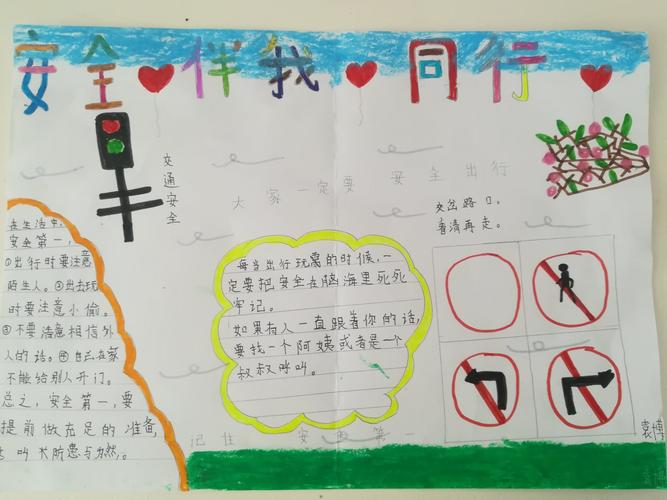 安全伴我同行
交通安全
大家一定要安全出行
交岔路口,
看清再走。
在生活中,
安全第一,
①出行时要注意
陌生人。②出去玩
时要注意小偷。
③不要随意相信外
人的话。④自己在家
不能给别人开门。
总之,安全第一,要
提前做充足的准备,
叫木防患与为然。
每当出行玩的时候,一
定要把安全在脑海里死死
牢记。
如果有人一直跟着你的话,
要找一个阿姨或者是一个
叔叔呼叫。
记住 安 第一
袁博